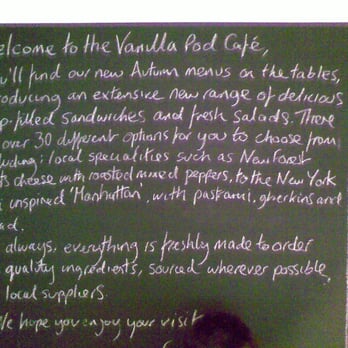 elcome to the Vanilla Pod Café,
u'll find our new Autumn menus on the tables,
roducing an extensive new range of delicious
p-filled sandwiches and fresh salads. There
over 30 different options for you to choose from
luding: local specialities such as New Forest
ts cheese with roasted mixed peppers, to the New York
i inspired 'Manhattan', with pastrami, gherkins and
ad.
always, everything is freshly made to order
quality ingredients, sourced wherever possible,
local suppliers.
We hope you enjoy your visit